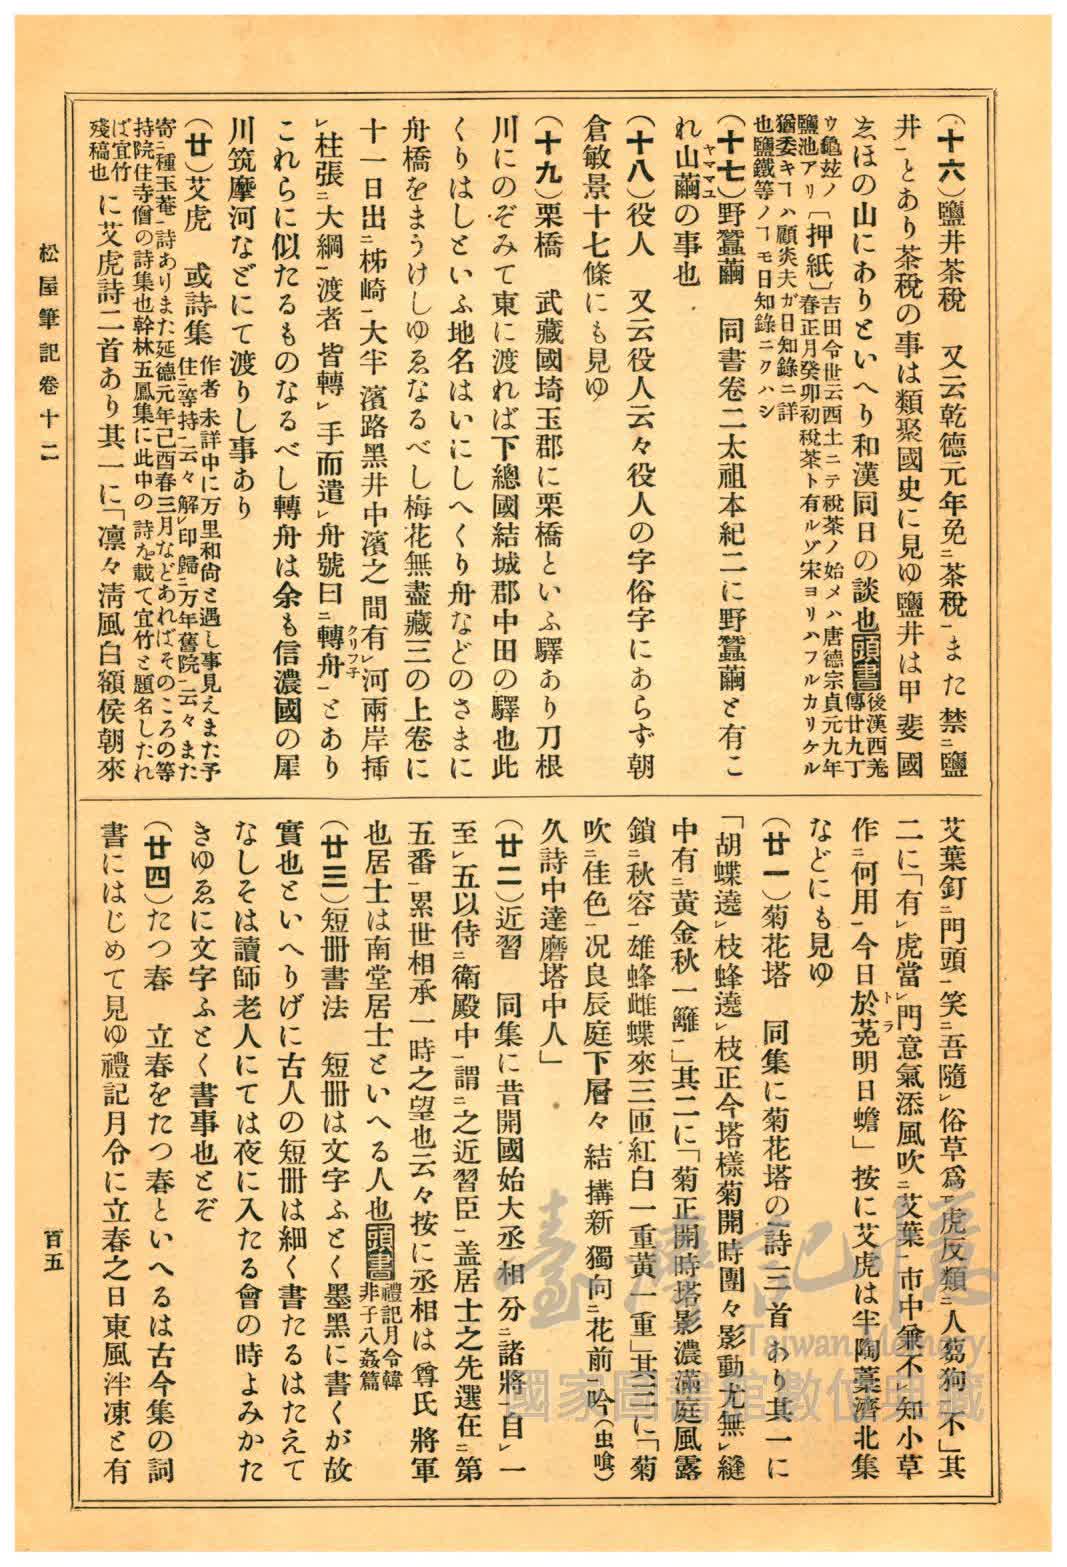 (十六)鹽井茶稅　又云乾德元年免ニ茶稅一また禁ニ鹽
井一とあり茶稅の事は類聚國史に見ゆ鹽井は甲斐國
ゑほの山にありといへり和漢同日の談也頭書後漢西羗
傳廿九丁
ウ龜玆ノ
鹽池アリ〔押紙〕吉田令世云西土ニテ稅茶ノ始メハ唐德宗貞元九年
春正月癸卯初稅茶ト有ルゾ宋ヨリハフルカリケル
猶委キヿハ顧炎夫ガ日知錄ニ詳
也鹽鐵等ノヿモ日知錄ニクハシ
(十七)野蠶繭　同書卷二太祖本紀二に野蠶繭と有こ
れ山繭の事也
ヤママユ
(十八)役人　又云役人云々役人の字俗字にあらず朝
倉敏景十七條にも見ゆ
(十九)栗橋　武藏國埼玉郡に栗橋といふ驛あり刀根
川にのぞみて東に渡れば下總國結城郡中田の驛也此
くりはしといふ地名はいにしへくり舟などのさまに
舟橋をまうけしゆゑなるべし梅花無盡藏三の上卷に
十一日出ニ柹崎一大半濱路黑井中濱之間有レ河兩岸揷
レ柱張ニ大綱一渡者皆轉レ手而遣レ舟號曰ニ轉舟一とあり
クリフ子
これらに似たるものなるべし轉舟は余も信濃國の犀
川筑摩河などにて渡りし事あり
(廿)艾虎　或詩集作者未詳中に万里和尙と遇し事見えまた予
住ニ等持一云々解レ印歸ニ万年舊院一云々また
寄ニ種玉菴一詩ありまた延德元年己酉春三月などあればそのころの等
持院住寺僧の詩集也幹林五鳳集に此中の詩を載て宜竹と題名したれ
ば宜竹
殘稿也に艾虎詩二首あり其一に「凛々淸風白額侯朝來
艾葉釘ニ門頭一笑ニ吾隨レ俗草爲レ虎反類ニ人芻狗不」其
二に「有レ虎當レ門意氣添風吹ニ艾葉一市中兼不レ知小草
作ニ何用一今日於莵明日蟾」按に艾虎は半陶藁濟北集
トラ
などにも見ゆ
(廿一)菊花塔　同集に菊花塔の詩三首あり其一に
「胡蝶遶レ枝蜂遶レ枝正今塔樣菊開時團々影動尤無レ縫
中有ニ黃金秋一籬一」其二に「菊正開時塔影濃滿庭風露
鎖ニ秋容一雄蜂雌蝶來三匝紅白一重黃一重」其三に「菊
吹ニ佳色一况良辰庭下層々結搆新獨向ニ花前一吟(虫喰)
久詩中達磨塔中人」
(廿二)近習　同集に昔開國始大丞相分ニ諸將一自レ一
至レ五以侍ニ衞殿中一謂ニ之近習臣一盖居士之先選在ニ第
五番一累世相承一時之望也云々按に丞相は尊氏將軍
也居士は南堂居士といへる人也頭書禮記月令韓
非子八姦篇
(廿三)短册書法　短册は文字ふとく墨黑に書くが故
實也といへりげに古人の短册は細く書たるはたえて
なしそは讀師老人にては夜に入たる會の時よみかた
きゆゑに文字ふとく書事也とぞ
(廿四)たつ春　立春をたつ春といへるは古今集の詞
書にはじめて見ゆ禮記月令に立春之日東風泮凍と有
松屋筆記卷十二
百五
臺灣記憶
Taiwan Memory
國家圖書館數位典藏